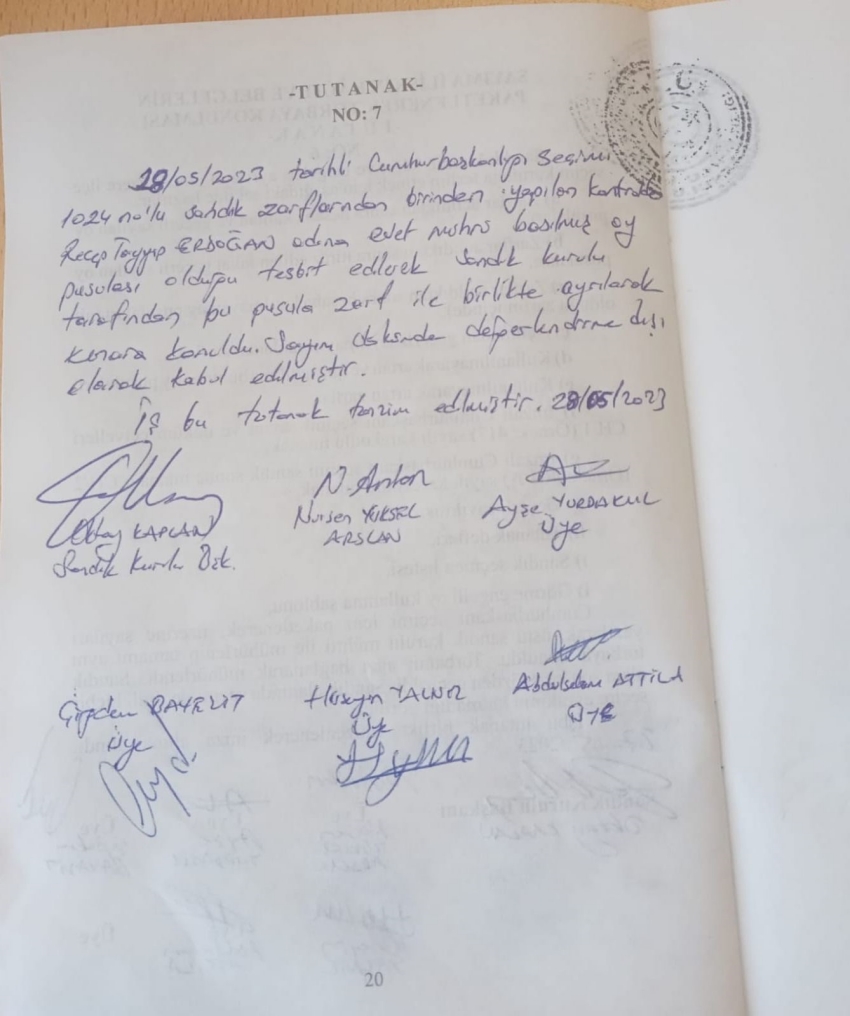 -TUTANAK-
NO: 7
28/05/2023 tarihli Cumhurbaşkanlığı Seçimi
1024 no'lu sandık zarflarından birinden yapılan kontrolde
Recep Tayyip ERDOĞAN adına evet mührü basılmış oy
pusulası olduğu tesbit edilerek sandık kurulu
tarafından bu pusula zarf ile birlikte ayrılarak
kenara konuldu. Sayım değerlendirme dışı
olarak kabul edilmiştir.
İş bu tutanak tanzim edilmiştir. 28/05/2023
N. Arslan
KAPLAN Nursen YÜKSEL Ayşe YURDAKUL
ARSLAN Üye
Sandık Kurulu Bşk.
Çiğdem Hüseyin YALNIZ Abdulselam ATTİLA
Üye Üye Üye
20